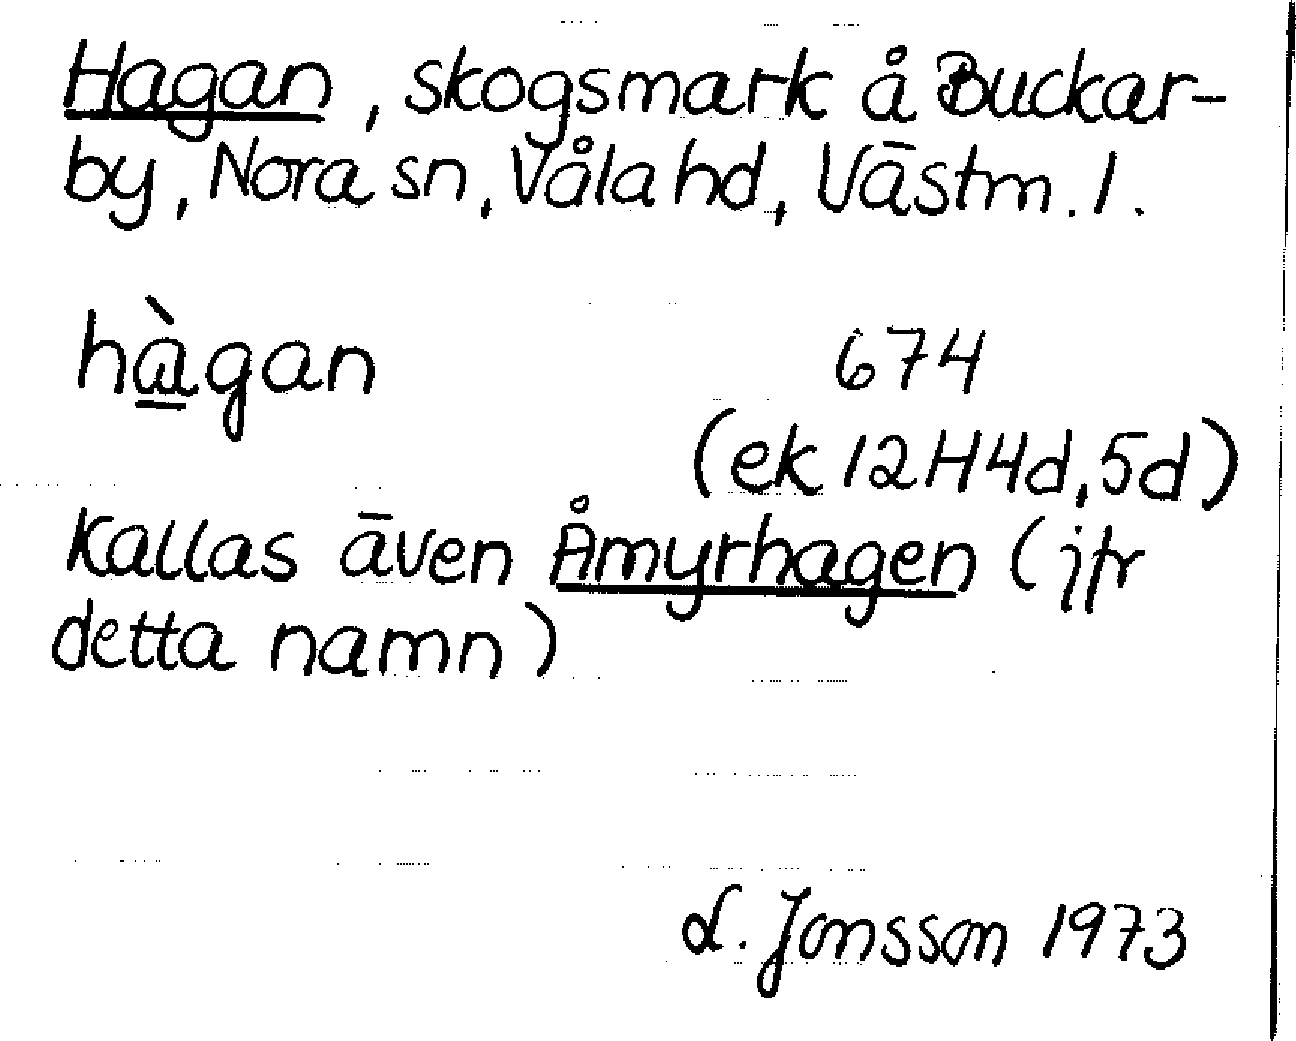 Hagan, skogsmark å Buckar-
by, Nora sn, Våla hd, Västm. l.
hàgan
674
(ek 12H4d,5d)
Kallas även Åmyrhagen (jfr
detta namn)
L. Jonsson 1973